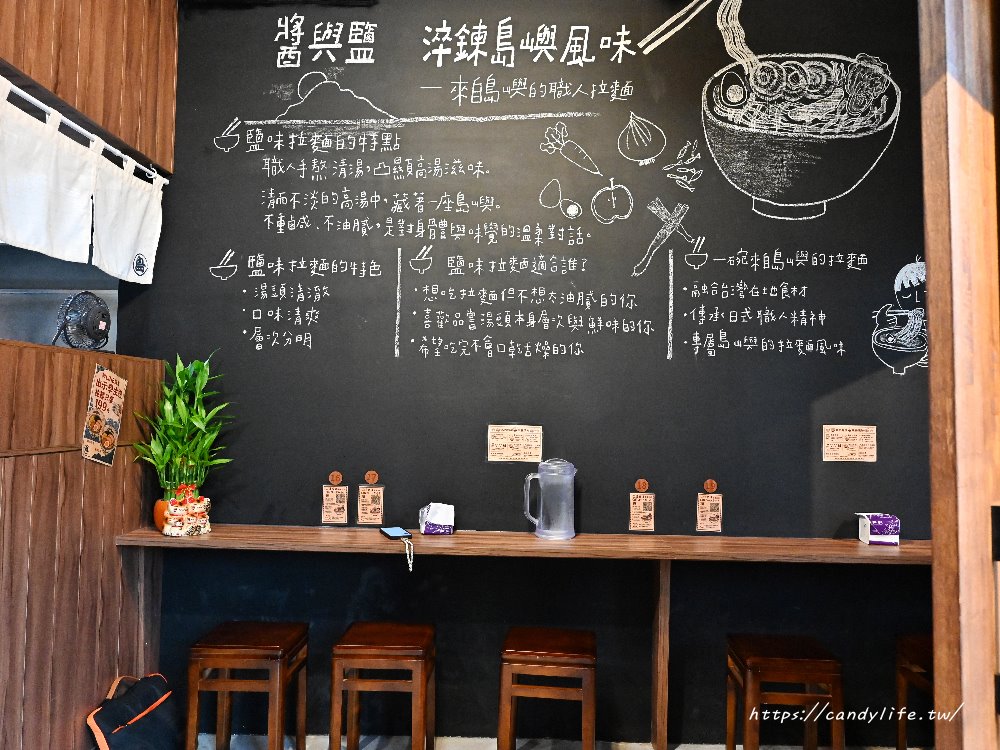 醬與鹽 淬鍊島嶼風味
一來自島嶼的職人拉麵
鹽味拉麵的特點
職人手熬清湯,凸顯高湯滋味。
清而不淡的高湯中,藏著一座島嶼。
不重鹹、不油膩,是對身體與味覺的溫柔對話。
鹽味拉麵的特色
・湯頭清澈
・口味清爽
・層次分明
鹽味拉麵適合誰?
・想吃拉麵但不想太油膩的你
・喜歡品嘗湯頭本身層次與鮮味的你
・希望吃完不會口乾舌燥的你
一碗來自島嶼的拉麵
・融合台灣在地食材
・傳承日式職人精神
・專屬島嶼的拉麵風味
島
199
https://candylife.tw/